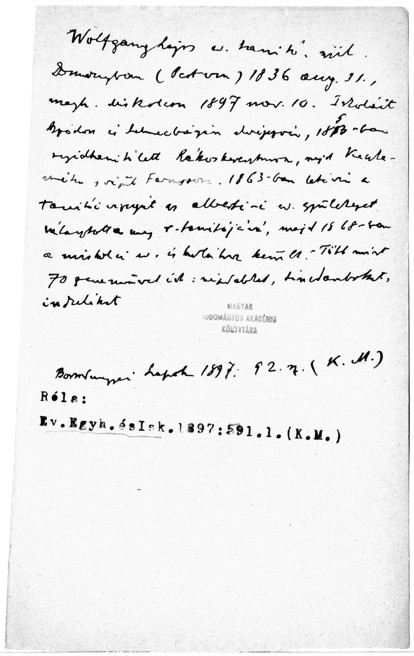 Wolfgang Lajos ev. tanító. szül.
Domonyban (Pest vm) 1836 aug. 31.,
megh. Miskolcon 1897 nov. 10. Iskoláit
Aszódon és Selmecbányán elvégezvén, 185-ban
segédtanító lett Rákoskeresztúron, majd Kecske-
méten végül . 1863-ban letévén a
tanítói vizsgát az albertii ev. gyülekezet
választotta meg r. tanítójává, majd 1868-ban
a miskolci ev. iskolához került. - Több mint
70 zeneművet írt: népdalokat, táncdarabokat,
indulókat
MAGYAR
TUDOMÁNYOS AKADÉMIA
KÖNYVTÁRA
Borsodmegyei Lapok 1897: 92. sz. (K. M.)
Róla:
Ev.Egyh.ésIsk.1897:591.l.(K.M.)